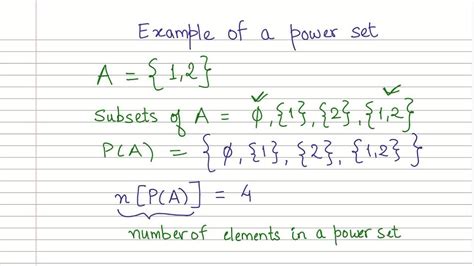 Example of a power set
A = {1,2}
Subsets of A = ϕ, {1}, {2}, {1,2}
P(A) = {ϕ, {1}, {2}, {1,2}}
n[P(A)] = 4
number of elements in a power set